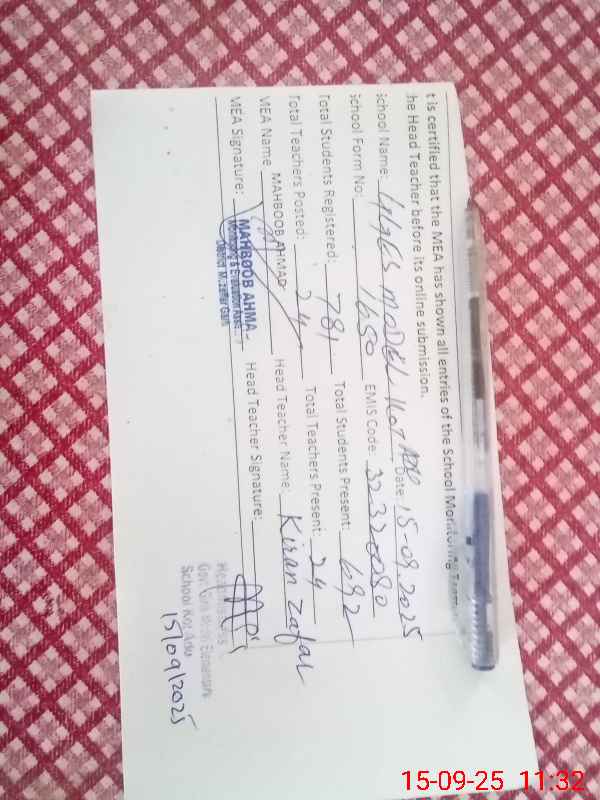 t is certified that the MEA has shown all entries of the School Monitoring
he Head Teacher before its online submission.
School Name: MODEL KOT ADU Date: 15-09.2025
School Form No: 1650 EMIS Code: 32320080
Total Students Registered: 781 Total Students Present: 692
Total Teachers Posted: 24 Total Teachers Present: 24
MEA Name MAHBOOB AHMAD Head Teacher Name: Kiran Zafar
MEA Signature: Head Teacher Signature:
MAHBOOB AHMA
Monitoring & Evaluation
District Muzaffar Garh
School Kot Adu
15/09/2025
15-09-25 11:32